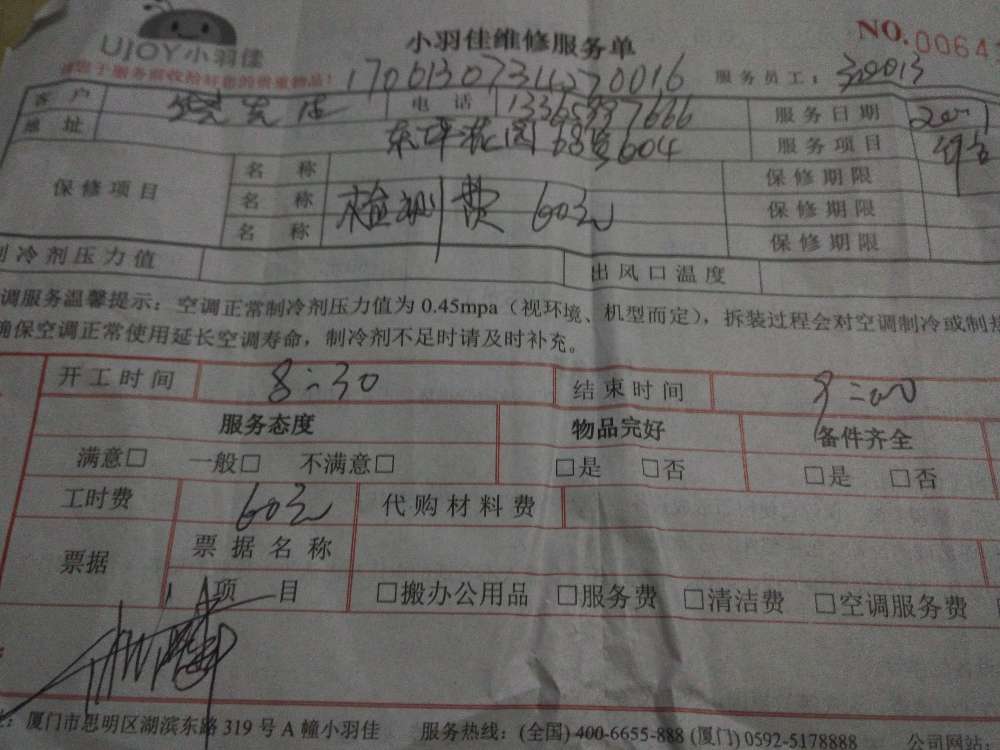 UJOY小羽佳
小羽佳维修服务单
NO.0064
服务员工:
客户 先生 电话 服务日期
地址 东坪花园 604 服务项目
保修项目 名称 保修期限
名称 检测费 60元 保修期限
名称 保修期限
制冷剂压力值 出风口温度
调服务温馨提示：空调正常制冷剂压力值为 0.45mpa（视环境、机型而定），拆装过程会对空调制冷或制热
确保空调正常使用延长空调寿命，制冷剂不足时请及时补充。
开工时间 8:30 结束时间 9:00
服务态度 物品完好 备件齐全
满意□ 一般□ 不满意□ □是 □否 □是 □否
工时费 60元 代购材料费
票据 票据名称
项目 □搬办公用品 □服务费 □清洁费 □空调服务费
厦门市思明区湖滨东路 319 号 A 幢小羽佳 服务热线：(全国) 400-6655-888 (厦门) 0592-5178888 公司网站